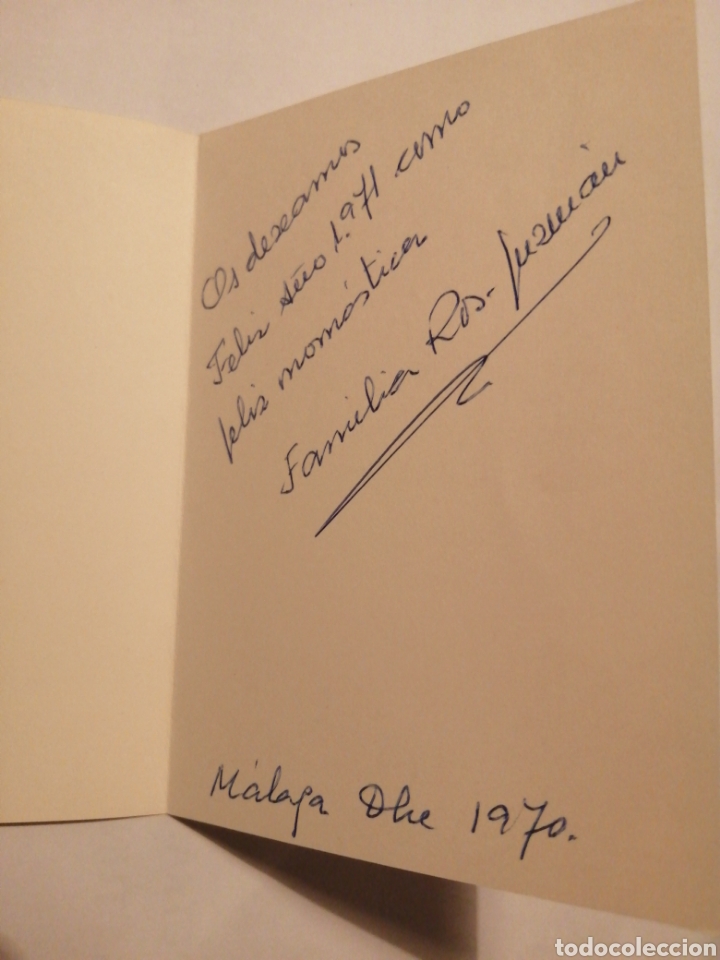 Os deseamos
Feliz Año 1.971 como
feliz monóstica
Familia Ros-Guzmán
Málaga Dbe 1970.
todocoleccion